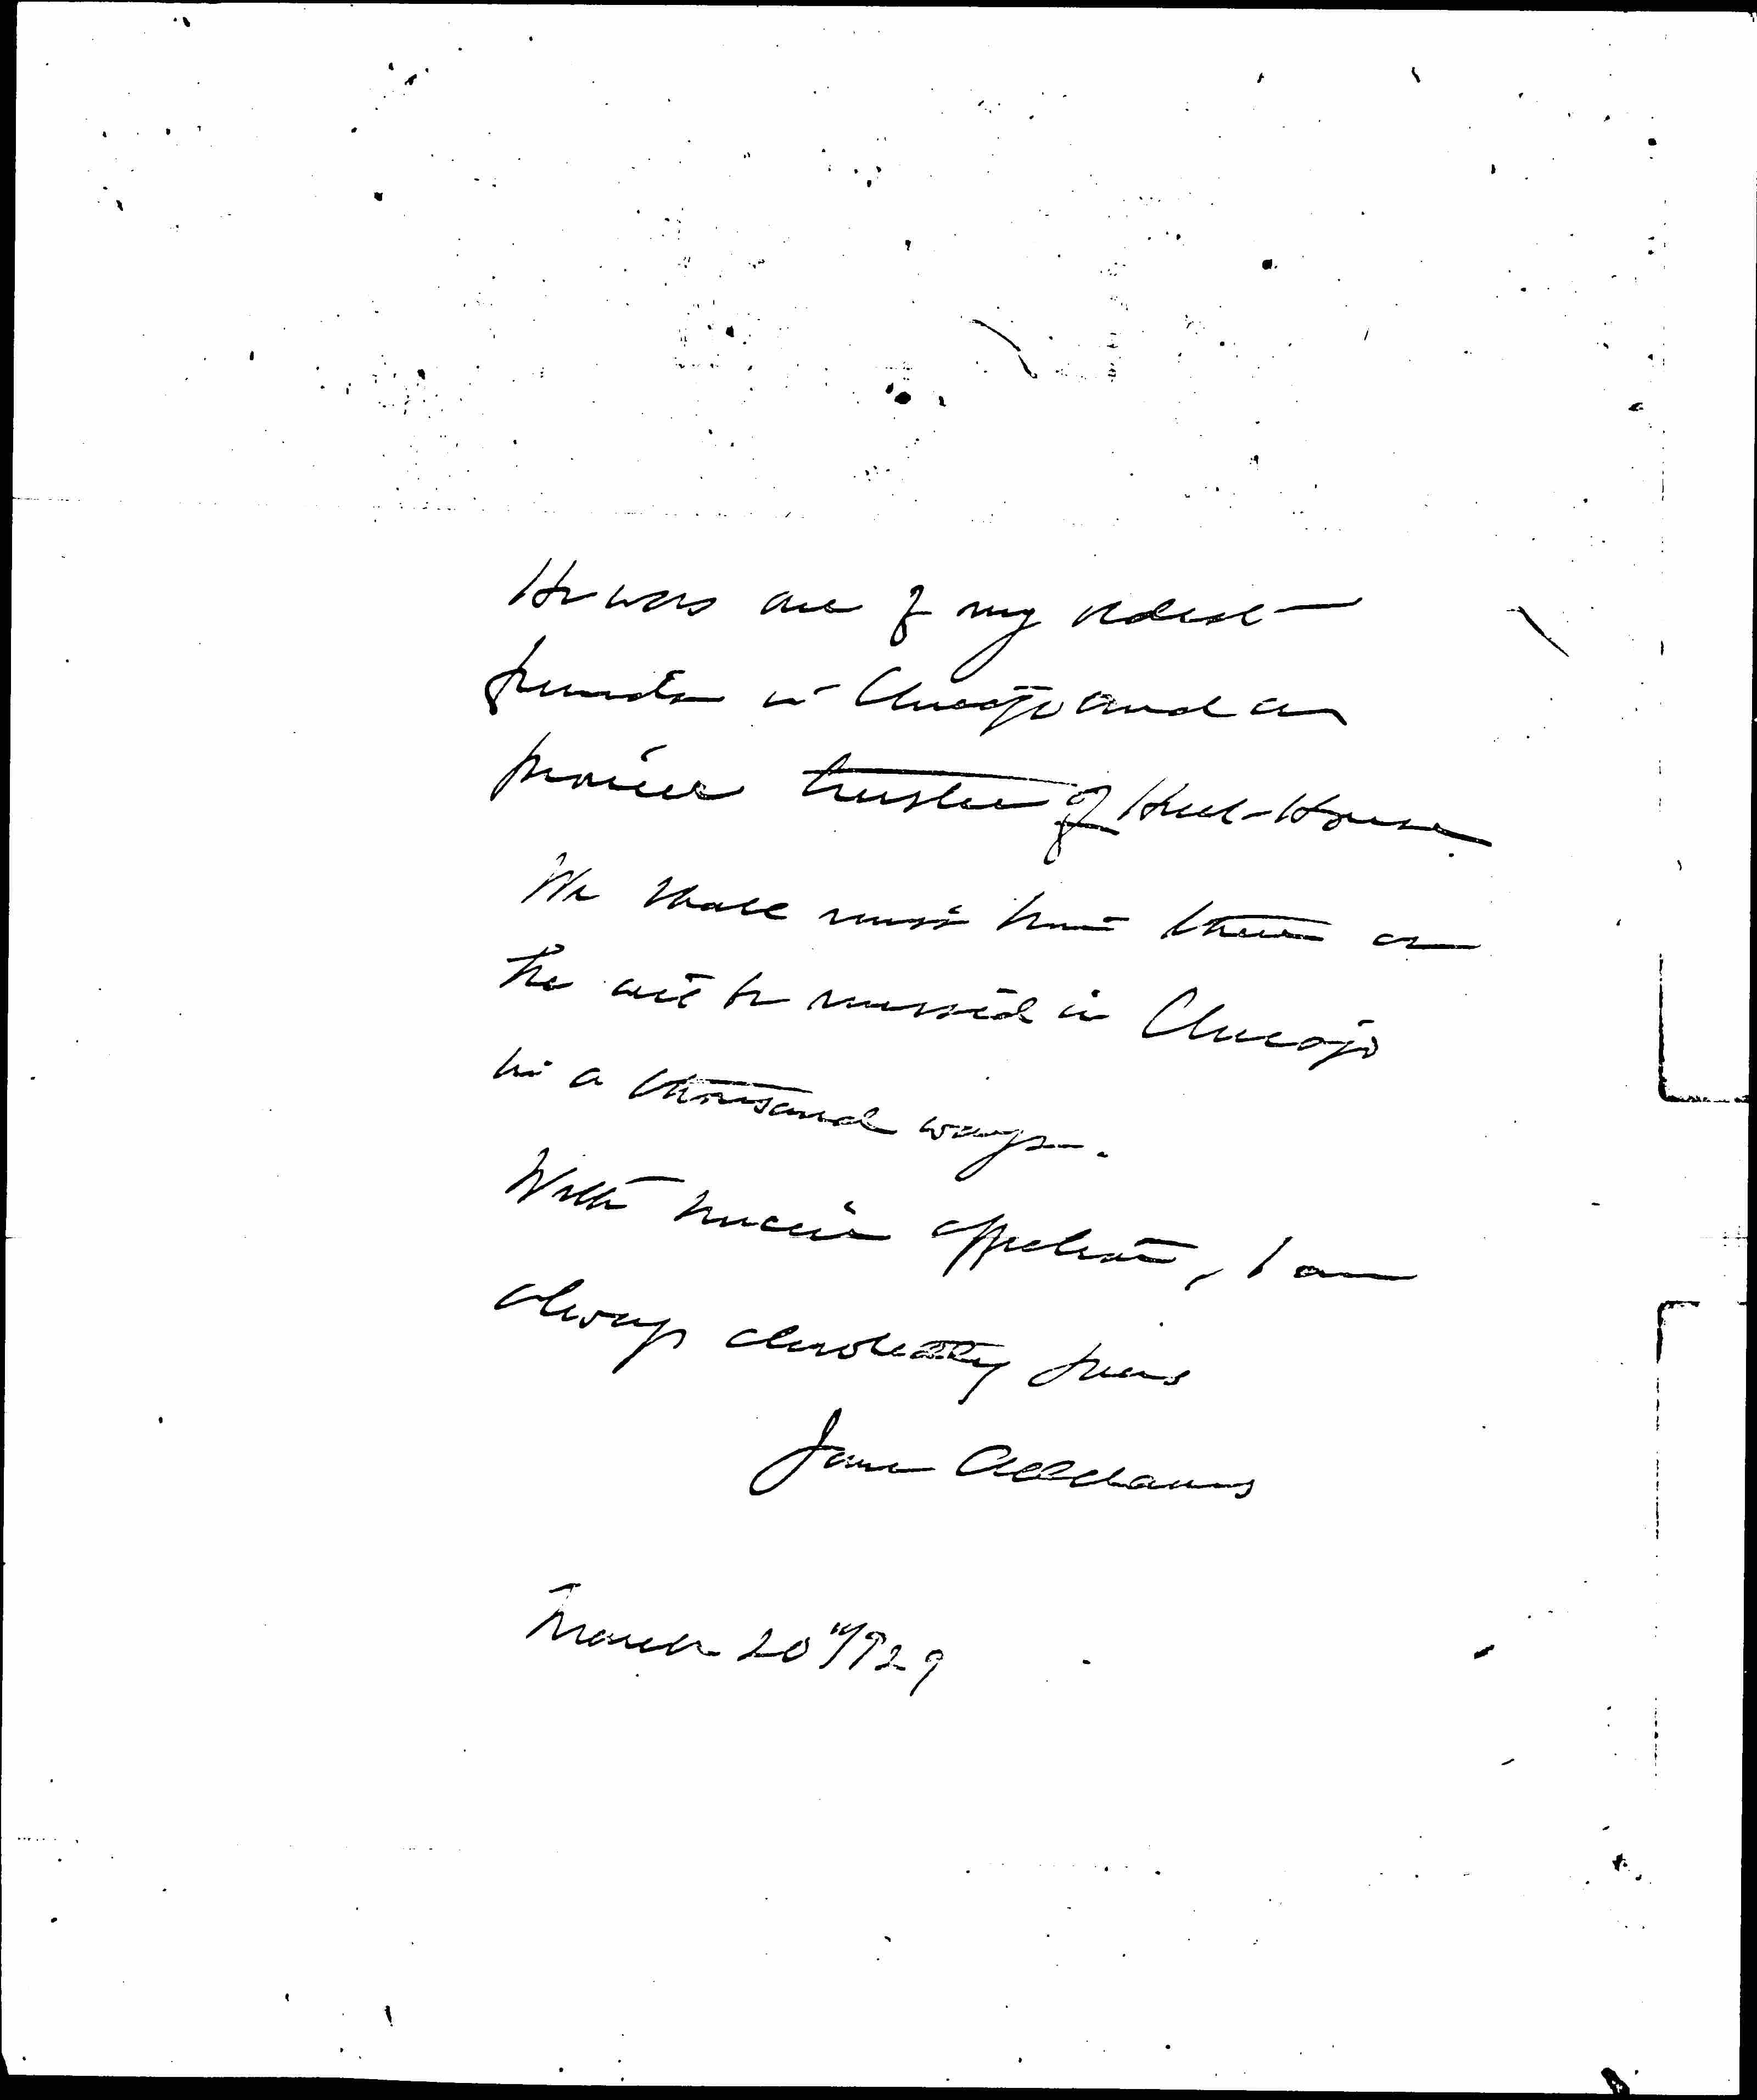 He was one of my oldest
friends in Chicago and a
pioneer trustee of Hull-House
We shall miss him there as
he will be missed in Chicago
in a thousand ways.
With much affection, I am
always devotedly yours
Jane Addams
March 20" 1929